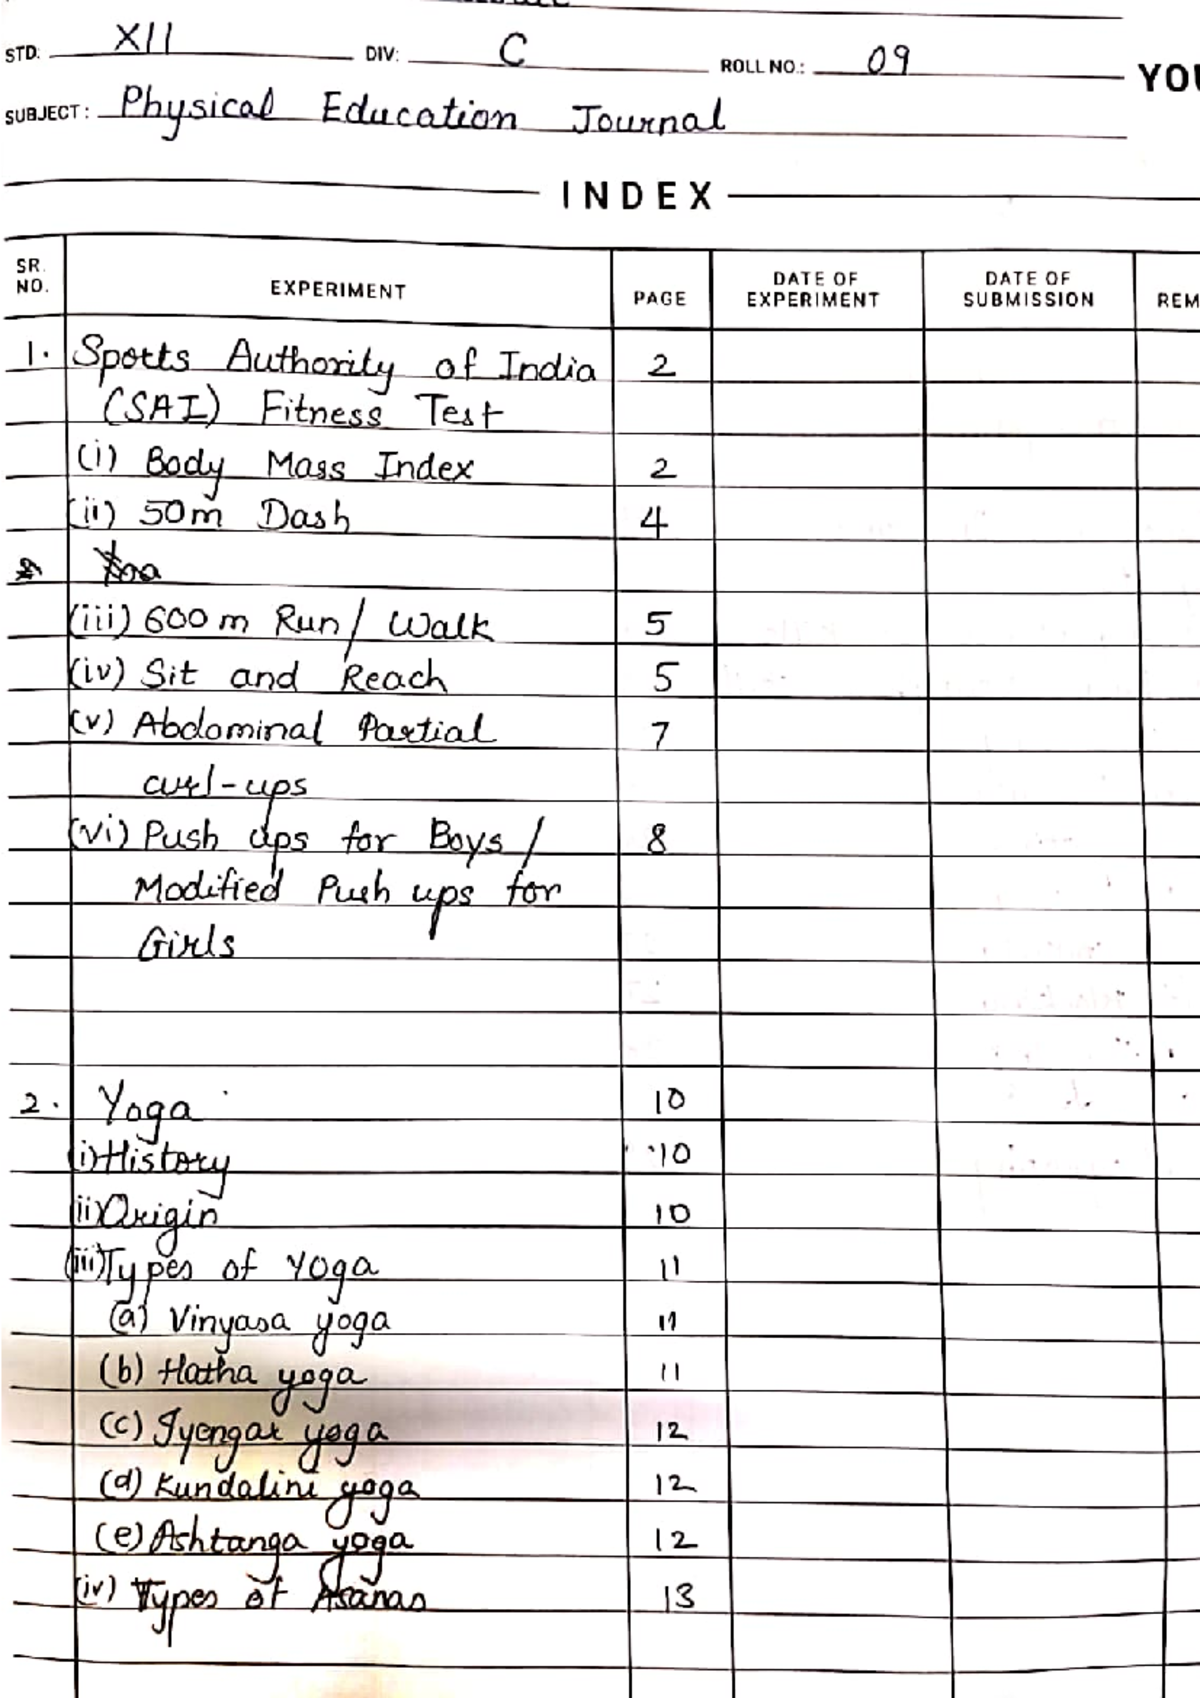 STD: XII DIV: C ROLL NO.: 09
YOU
SUBJECT: Physical Education Journal
INDEX
SR. NO. EXPERIMENT PAGE DATE OF EXPERIMENT DATE OF SUBMISSION REM
1. Sports Authority of India 2
(SAI) Fitness Test
(i) Body Mass Index 2
(ii) 50m Dash 4
(iii) 600 m Run/ Walk 5
(iv) Sit and Reach 5
(v) Abdominal Partial 7
curl-ups
(vi) Push ups for Boys / 8
Modified Push ups for
Girls
2. Yoga 10
(i) History 10
(ii) Origin 10
(iii) Types of Yoga 11
(a) Vinyasa yoga 11
(b) Hatha yoga 11
(c) Iyengar yoga 12
(d) Kundalini yoga 12
(e) Ashtanga yoga 12
(iv) Types of Asanas 13